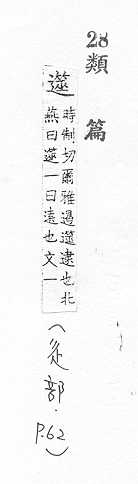 28
類篇
遾 時制切爾雅過遾逮也北
燕曰遾一曰遠也文一
(辵部.
P.62)